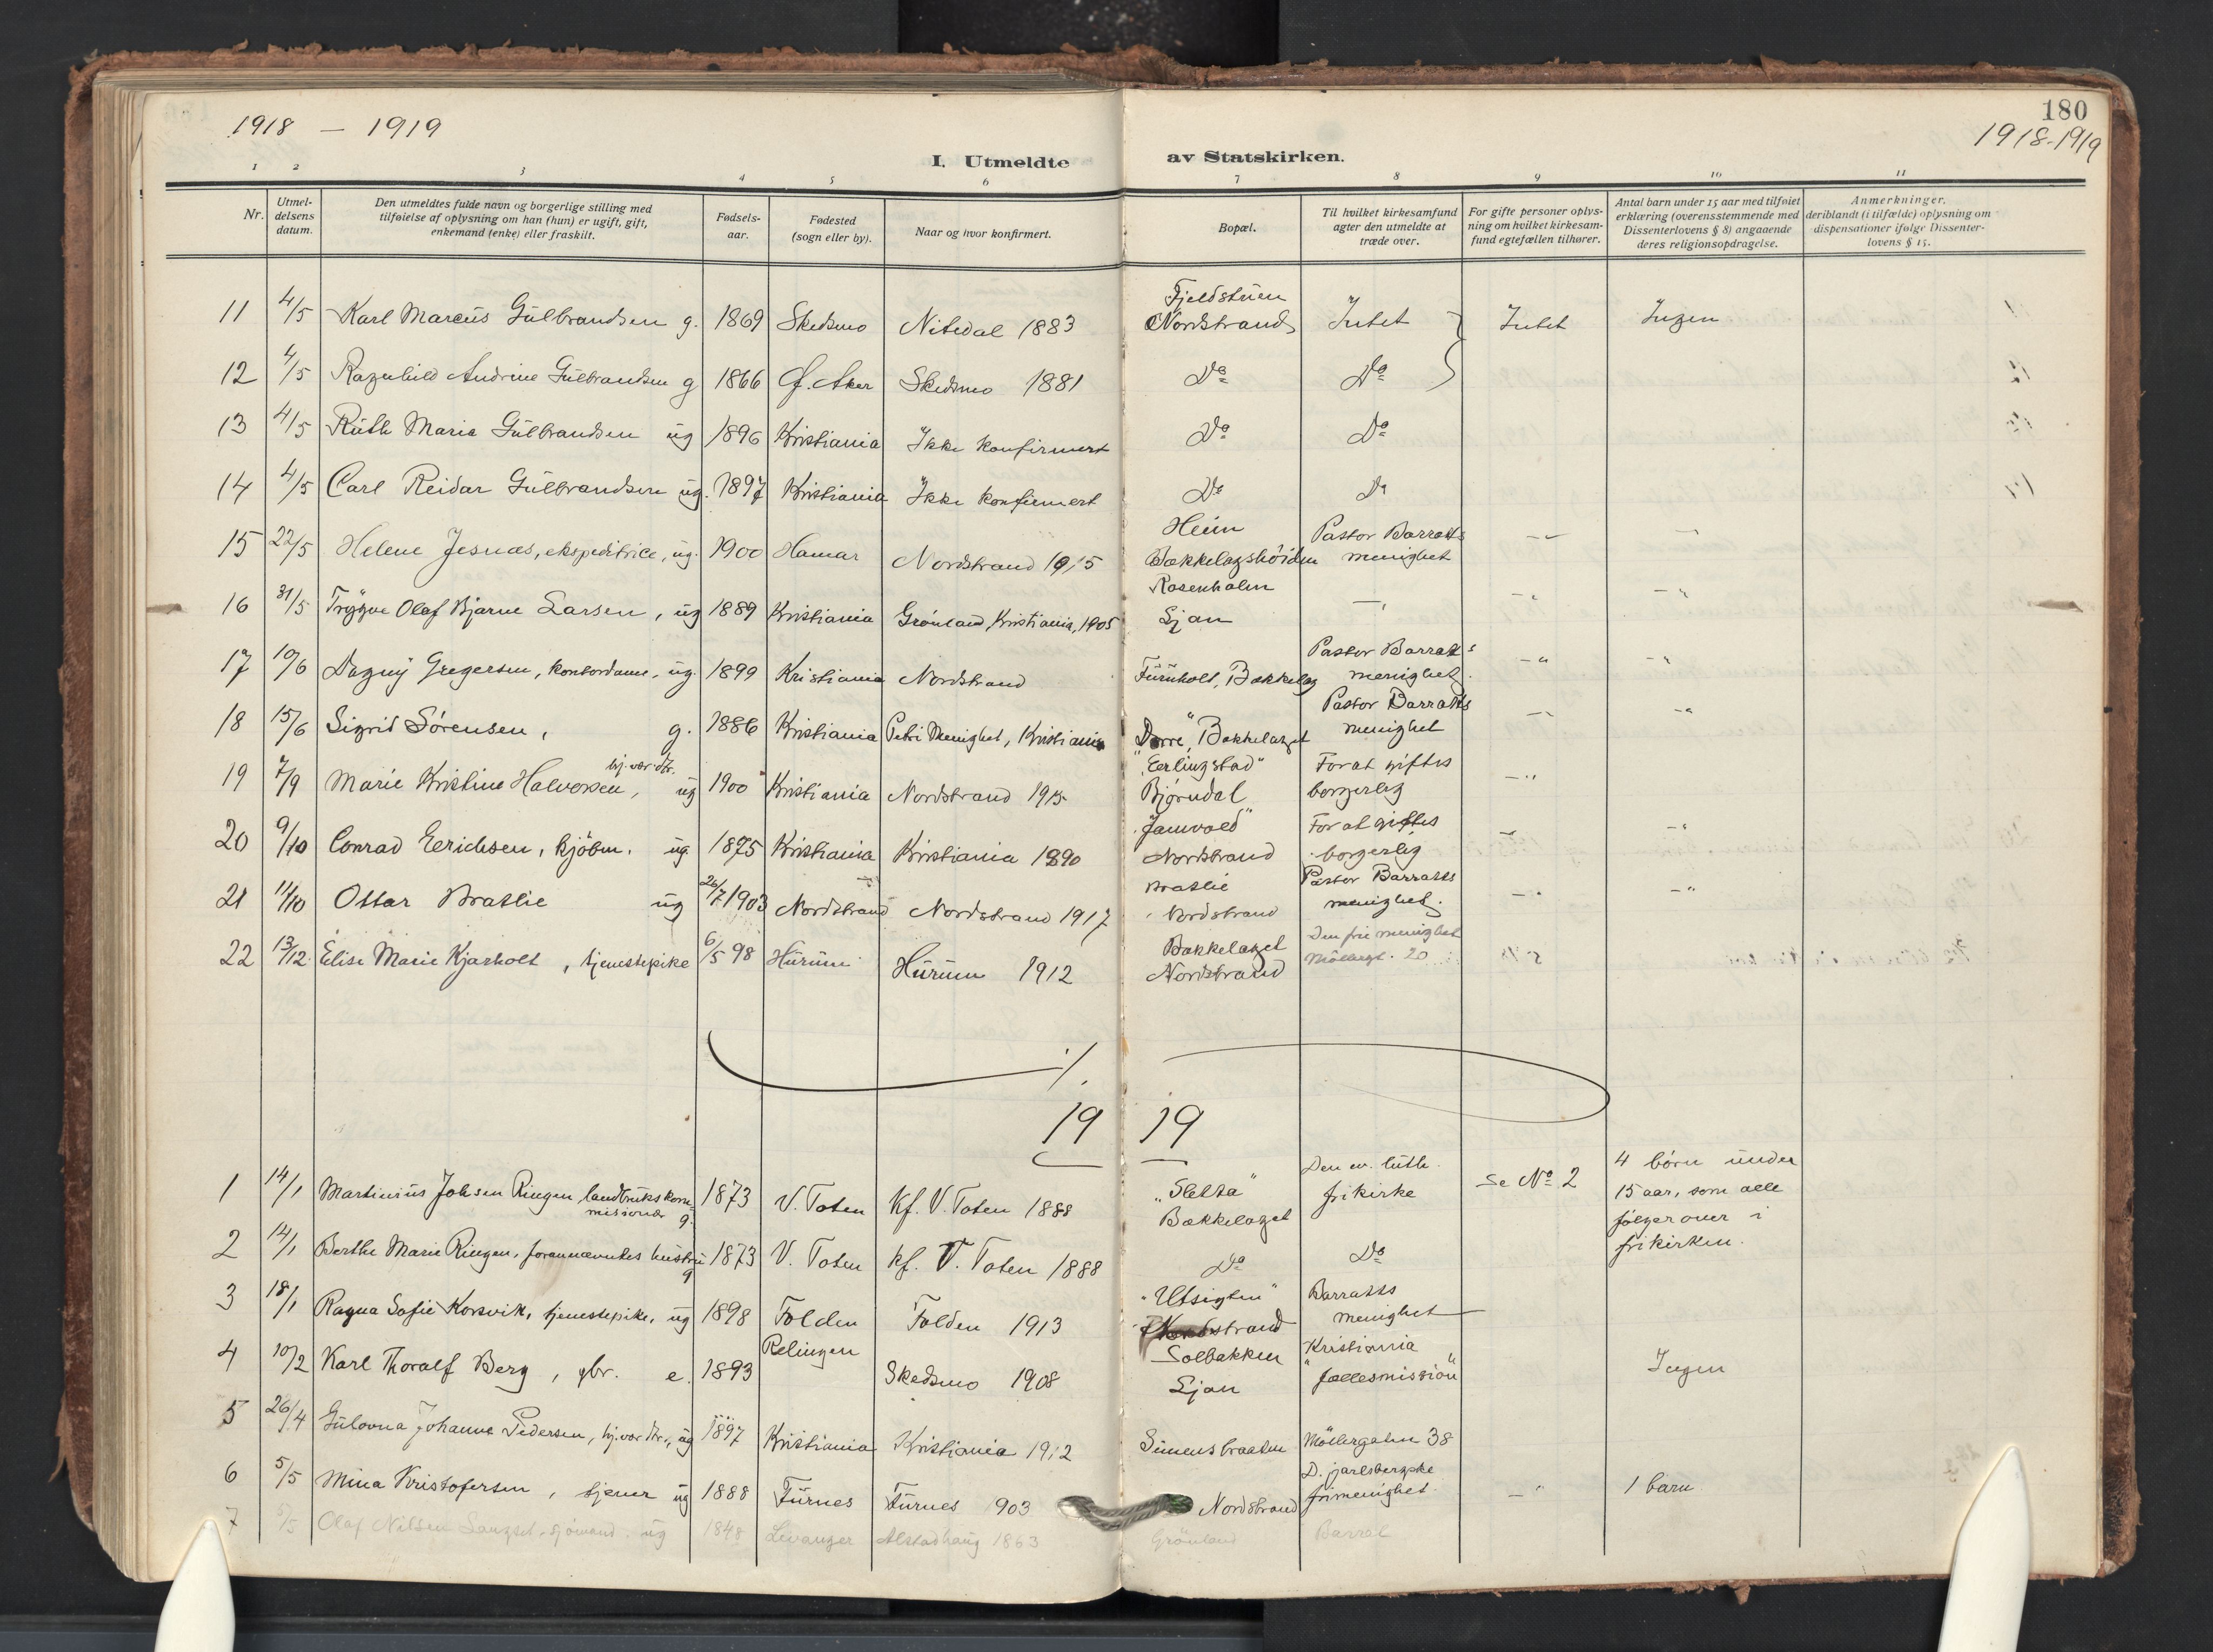 180
1918 – 1919
1918-1919
I. Utmeldte av Statskirken.
1 2 3 4 5 6 7 8 9 10 11
Nr.
Utmeldelsens datum.
Den utmeldtes fulde navn og borgerlige stilling med tilføielse af oplysning om han (hun) er ugift, gift, enkemand (enke) eller fraskilt.
Fødselsaar.
Fødested (sogn eller by).
Naar og hvor konfirmert.
Bopæl.
Til hvilket kirkesamfund agter den utmeldte at træde over.
For gifte personer oplysning om hvilket kirkesamfund egtefællen tilhører.
Antal barn under 15 aar med tilføiet erklæring (overensstemmende med Dissenterlovens § 8) angaaende deres religionsopdragelse.
Anmerkninger, deriblandt (i tilfælde) oplysning om dispensationer ifølge Dissenterlovens § 15.
11 4/5 Karl Marcus Gulbrandsen g. 1869 Skedsmo Nitedal 1883 Fjeldstuen Nordstrand Intet Intet Ingen
12 4/5 Ragnhild Andrine Gulbrandsen g 1866 Skedsmo 1881 Do Do
13 4/5 Ruth Marie Gulbrandsen ug 1896 Kristiania Ikke konfirmert Do Do
14 4/5 Carl Reidar Gulbrandsen ug. 1897 Kristiania Ikke konfirmert Do Do
15 22/5 Helene Jesnæs, ekspeditrice, ug. 1900 Hamar Nordstrand 1915 Heim Bækkelagshöiden Pastor Barratts menighet — —
16 31/5 Trygve Olaf Bjarne Larsen, ug 1889 Kristiania Grönland, Kristiania, 1905 Rosenholm Ljan — —" —"
17 10/6 Dagny Gregersen, kontordame, ug. 1899 Kristiania Nordstrand Furuholt, Bækkelag Pastor Barratts menighet. —" —"
18 15/6 Sigrid Sörensen, g. 1886 Kristiania Petri Menighet, Kristiania Bækkelaget Pastor Barratts menighet — —"
19 7/9 Marie Kristine Halvorsen, hj. vær. dtr. ug 1900 Kristiania Nordstrand 1915 "Eerlingstad" Bjørndal For at giftes borgerlig —"
20 9/10 Conrad Eerichsen, kjöbm. ug 1875 Kristiania Kristiania 1890 Nordstrand For at giftes borgerlig — —"
21 11/10 Ottar Bratlie ug 26/7 1903 Nordstrand Nordstrand 1917 Bratlie Nordstrand Pastor Barratts menighet. —" —"
22 13/12 Elise Marie Kjærholt, tjenestepike 6/5 98 Hurum Hurum 1912 Bækkelaget Nordstrand Den frie menighet Möllergt. 20
./.
19 19
1 14/1 Martinius Johsen Ringen, landbrukskommissionær g. 1873 V. Toten Kf. V. Toten 1888 "Sletta" Bækkelaget Den ev. luth. frikirke Se No 2 4 börn under 15 aar, som alle fölger over i frikirken.
2 14/1 Berthe Marie Ringen, forannævntes hustru g 1873 V. Toten Kf. V. Toten 1888 Do Do
3 18/1 Ragna Sofie Korsvik, tjenestepike, ug 1898 Folden Folden 1913 "Utsigten" Nordstrand Barratts menighet —
4 10/2 Karl Thoralf Berg, gbr. e. 1893 Relingen Skedsmo 1908 Solbakken Ljan Kristiania "fællesmission" Ingen
5 26/4 Gulovna Johanne Pedersen, hj. vær. dtr., ug 1897 Kristiania Kristiania 1912 Simensbraaten Möllergaten 38
6 5/5 Mina Kristofersen, tjener ug 1888 Furnes Furnes 903 Nordstrand D. jarlsbergske frimenighet. —" 1 barn
7 5/5 Olaf Nilsen Langset, sjömand. ug 1848 Levanger Alstadhaug 1863 Grönland Barrat